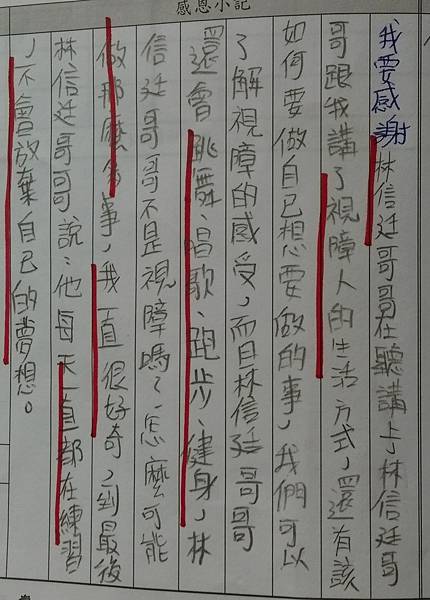 感恩小記
我要感謝林信廷哥哥在聽講上林信廷哥
哥跟我講了視障人的生活方式，還有該
如何要做自已想要做的事，我們可以
了解視障的感受，而且林信廷哥哥
還會跳舞、唱歌、跑步、健身，林
信廷哥哥不是視障嗎？怎麼可能
做那麼多事，我一直很好奇，到最後
林信廷哥哥說：他每天一直都在練習
，不會放棄自已的夢想。